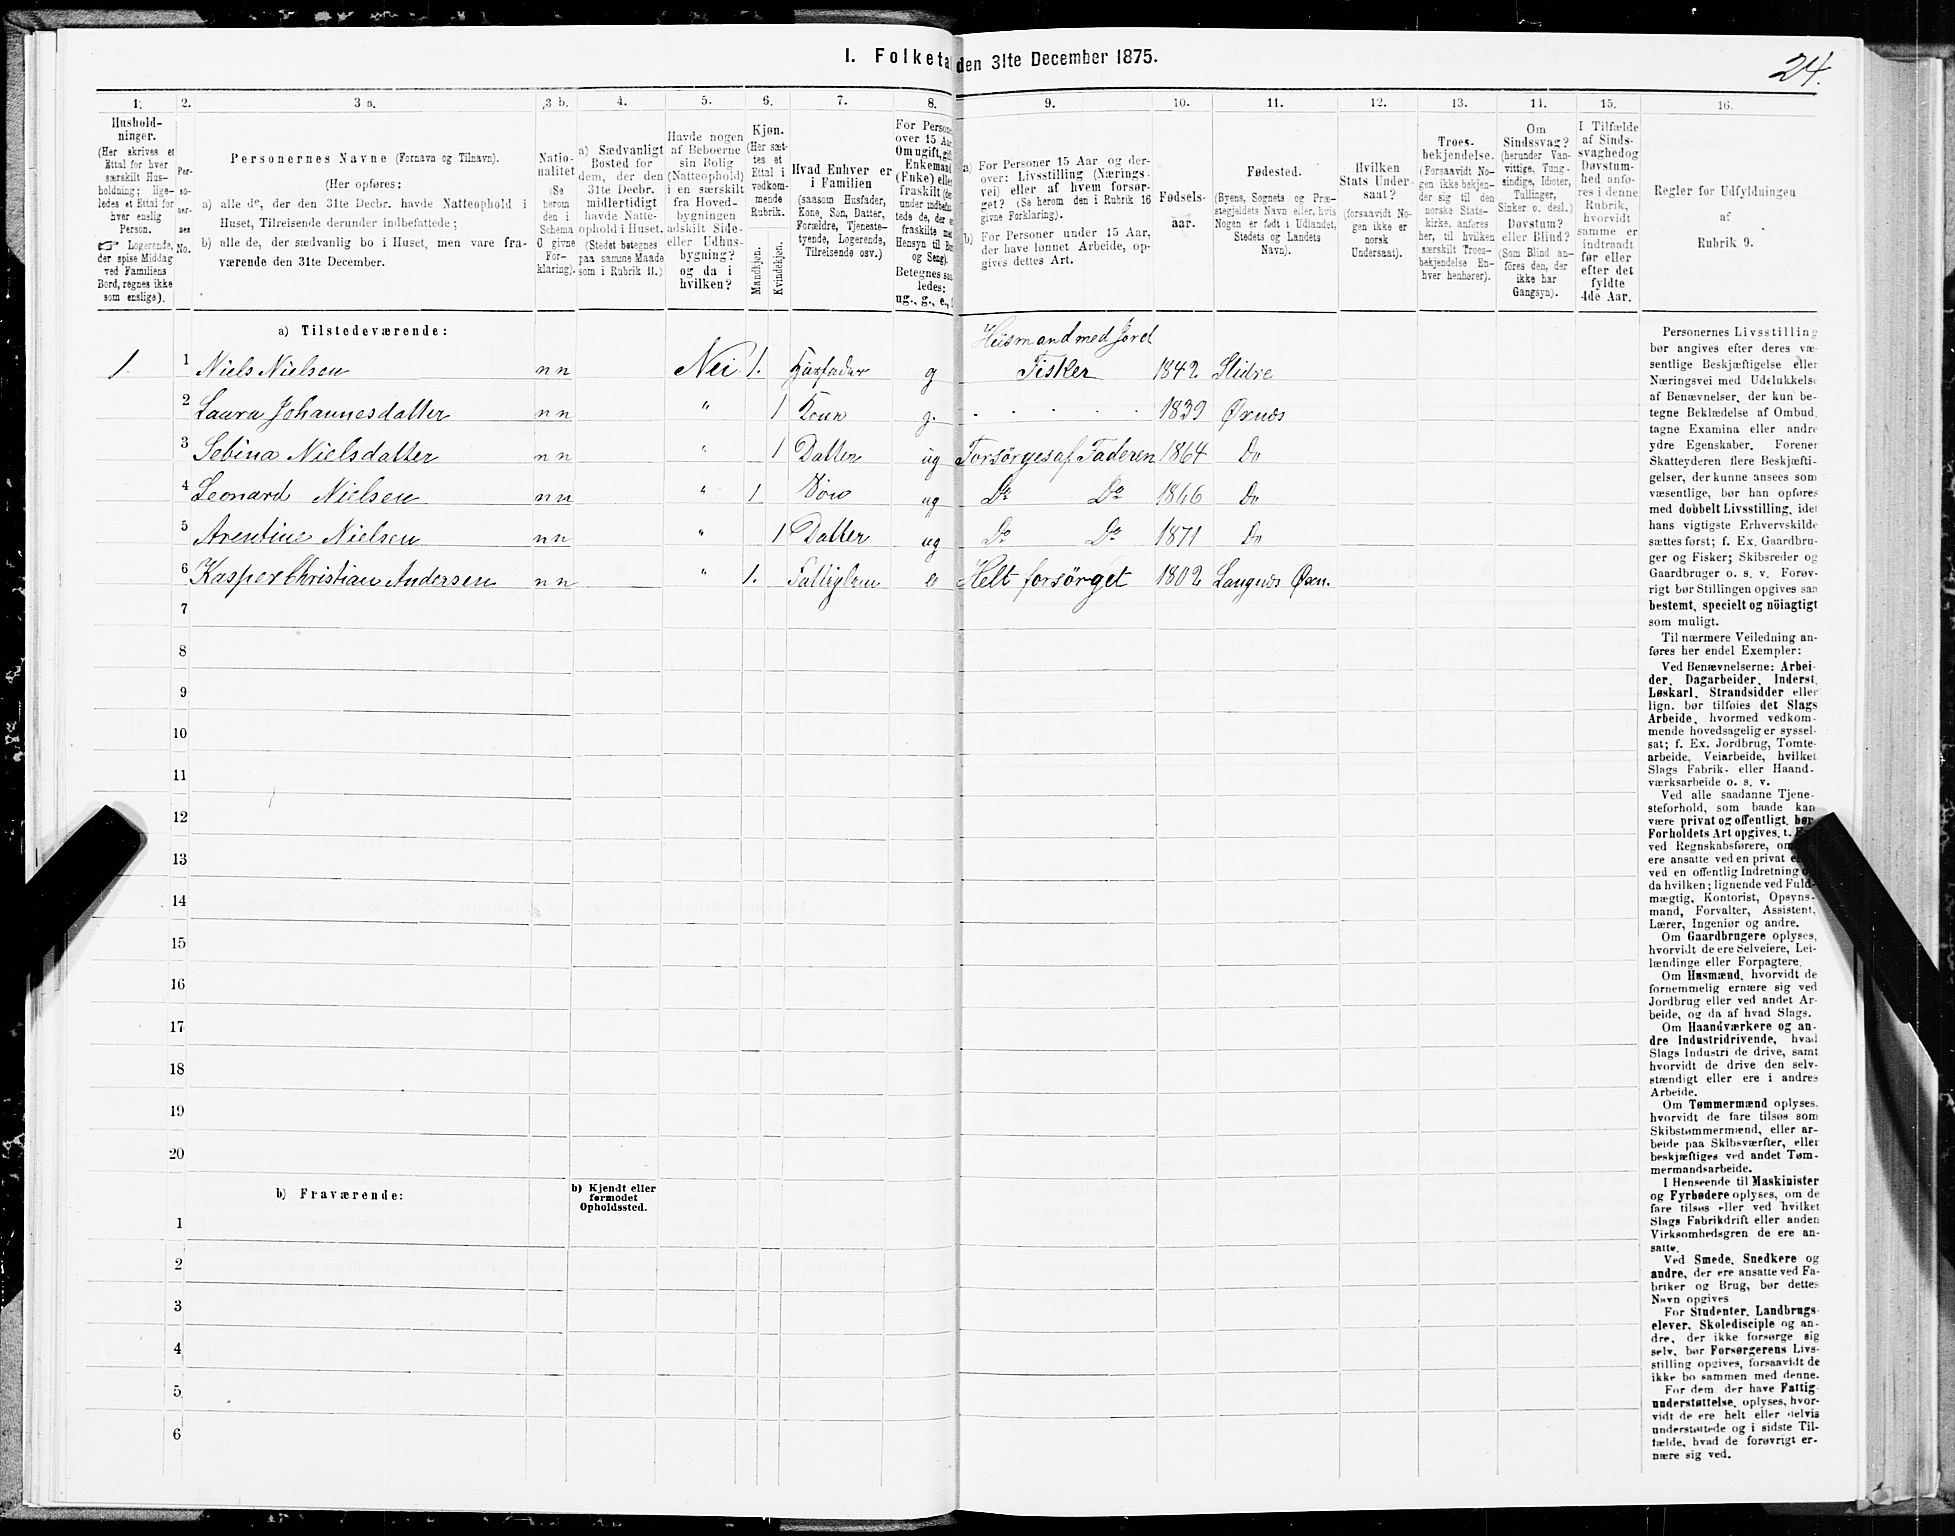 I. Folketa den 31te December 1875.
24.
1. 2. 3 a. 3 b. 4. 5. 6. 7. 8. 9. 10. 11. 12. 13. 14. 15. 16.
Hushold-
ninger.
(Her skrives et
Ettal for hver
særskilt Hus-
holdning; lige-
ledes et Ettal for
hver enslig
Person.
☞ Logerende,
der spise Middag
ved Familiens
Bord, regnes ikke
som enslige).
Per-
so-
ner-
nes
No.
Personernes Navne (Fornavn og Tilnavn).
(Her opføres:
a) alle de, der den 31te Decbr. havde Natteophold i
Huset, Tilreisende derunder indbefattede;
b) alle de, der sædvanlig bo i Huset, men vare fra-
værende den 31te December.
Natio-
nalitet
(Se
herom
den i
Schema
O givne
For-
klaring).
a) Sædvanligt
Bosted for
dem, der den
31te Decbr.
midlertidigt
havde Natte-
ophold i Huset.
(Stedet betegnes
paa samme Maade
som i Rubrik 11.)
Havde nogen
af Beboerne
sin Bolig
(Natteophold)
i en særskilt
fra Hoved-
bygningen
adskilt Side-
eller Udhus-
bygning?
og da i
hvilken?
Kjøn.
(Her sæt-
tes et
Ettal i
vedkom-
mende
Rubrik.
Mandkjøn.
Kvindekjøn.
Hvad Enhver er
i Familien
(saasom Husfader,
Kone, Søn, Datter,
Forældre, Tjeneste-
tyende, Logerende,
Tilreisende osv.)
For Persone
over 15 Aar
Om ugift, gift,
Enkemand
(Enke) eller
fraskilt (der-
under indbefat-
tede de, der er
fraskilte med
Hensyn til Bor
og Seng).
Betegnes saa
ledes:
ug., g., e., f
a) For Personer 15 Aar og der-
over: Livsstilling (Nærings-
vei) eller af hvem forsør-
get? (Se herom den i Rubrik 16
givne Forklaring).
b) For Personer under 15 Aar,
der have lønnet Arbeide, op-
gives dettes Art.
Fødsels-
aar.
Fødested.
(Byens, Sognets og Præ-
stegjeldets Navn eller, hvis
Nogen er født i Udlandet,
Stedets og Landets
Navn).
Hvilken
Stats Under-
saat?
(forsaavidt No-
gen ikke er
norsk
Undersaat).
Troes-
bekjendelse.
(Forsaavidt No-
gen ikke bekjen-
der sig til den
norske Stats-
kirke, anføres
her, til hvilken
særskilt Troes-
bekjendelse En-
hver henhører).
Om
Sindssvag?
(herunder Van-
vittige, Tung-
sindige, Idioter,
Tullinger,
Sinker o. desl.)
Døvstum?
eller Blind?
(Som Blind an-
føres den, der
ikke har
Gangsyn).
I Tilfælde
af Sinds-
svaghed og
Døvstum-
hed anfø-
res i denne
Rubrik,
hvorvidt
samme er
indtraadt
før eller
efter det
fyldte
4de Aar.
Regler for Udfyldningen
af
Rubrik 9.
a) Tilstedeværende:
Husmand med Jord
1. 1 Niels Nielsen n n Nei 1. Husfader g Fisker 1842 Slidre
2 Laura Johannesdatter n n " 1 Kone g. . . . . . 1839 Øxnes
3 Sebina Nielsdatter n n " 1 Datter ug Forsørges af Faderen 1864 Do
4 Leonard Nielsen n n " 1 Søn ug Do Do 1866 Do
5 Arentine Nielsen n n " 1 Datter ug Do Do 1871 Do
6 Kasper Christian Andersen n n " 1. Fattiglem e Helt forsørget 1802 Langnes Øxn.
7
8
9
10
11
12
13
14
15
16
17
18
19
20
b) Fraværende:
b) Kjendt eller
formodet
Opholdssted.
1
2
3
4
5
6
Personernes Livsstilling
bør angives efter deres væ-
sentlige Beskjæftigelse eller
Næringsvei med Udelukkelse
af Benævnelser, der kun be-
tegne Beklædelse af Ombud,
tagne Examina eller andre
ydre Egenskaber. Forener
Skatteyderen flere Beskjæfti-
gelser, der kunne ansees som
væsentlige, bør han opføres
med dobbelt Livsstilling, idet
hans vigtigste Erhvervskilde
sættes først; f. Ex. Gaardbru-
ger og Fisker; Skibsreder og
Gaardbruger o. s. v. Forøv-
rigt bør Stillingen opgives saa
bestemt, specielt og nöiagtigt
som muligt.
Til nærmere Veiledning an-
føres her endel Exempler:
Ved Benævnelserne: Arbei-
der, Dagarbeider, Inderst,
Løskarl, Strandsidder eller
lign. bør tilføies det Slags
Arbeide, hvormed vedkom-
mende hovedsagelig er syssel-
sat; f. Ex. Jordbrug, Tomte-
arbeide, Veiarbeide, hvilket
Slags Fabrik- eller Haand-
værksarbeide o. s. v.
Ved alle saadanne Tjene-
steforhold, som baade kan
være privat og offentligt, bør
Forholdets Art opgives, t.
ved Regnskabsførere, om
ere ansatte ved en privat
ved en offentlig Indretning
da hvilken; lignende ved Fuld-
mægtig, Kontorist, Opsyns-
mand, Forvalter, Assistent,
Lærer, Ingeniør og andre.
Om Gaardbrugere oplyses,
hvorvidt de ere Selveiere, Lei-
lændinge eller Forpagtere.
Om Husmænd, hvorvidt de
fornemmelig ernære sig ved
Jordbrug eller ved andet Ar-
beide, og da af hvad Slags.
Om Haandværkere og an-
dre Industridrivende, hvad
Slags Industri de drive, samt
hvorvidt de drive den selv-
stændigt eller ere i andres
Arbeide.
Om Tømmermænd oplyses,
hvorvidt de fare tilsøs som
Skibstømmermænd, eller ar-
beide paa Skibsværfter, eller
beskjæftiges ved andet Tøm-
mermandsarbeide.
I Henseende til Maskinister
og Fyrbødere oplyses, om de
fare tilsøs eller ved hvilket
Slags Fabrikdrift eller anden
Virksomhedsgren de ere an-
satte.
Ved Smede, Snedkere og
andre, der ere ansatte ved Fa-
briker og Brug, bør dettes
Navn opgives
For Studenter, Landbrugs-
elever, Skoledisciple og an-
dre, der ikke forsørge sig
selv, bør Forsørgerens Livs-
stilling opgives, forsaavidt de
ikke bo sammen med denne.
For dem, der have Fattig-
understøttelse, oplyses, hvor-
vidt de ere helt eller delvis
understøttede og i sidste Til-
fælde, hvad de forøvrigt er-
nære sig ved.